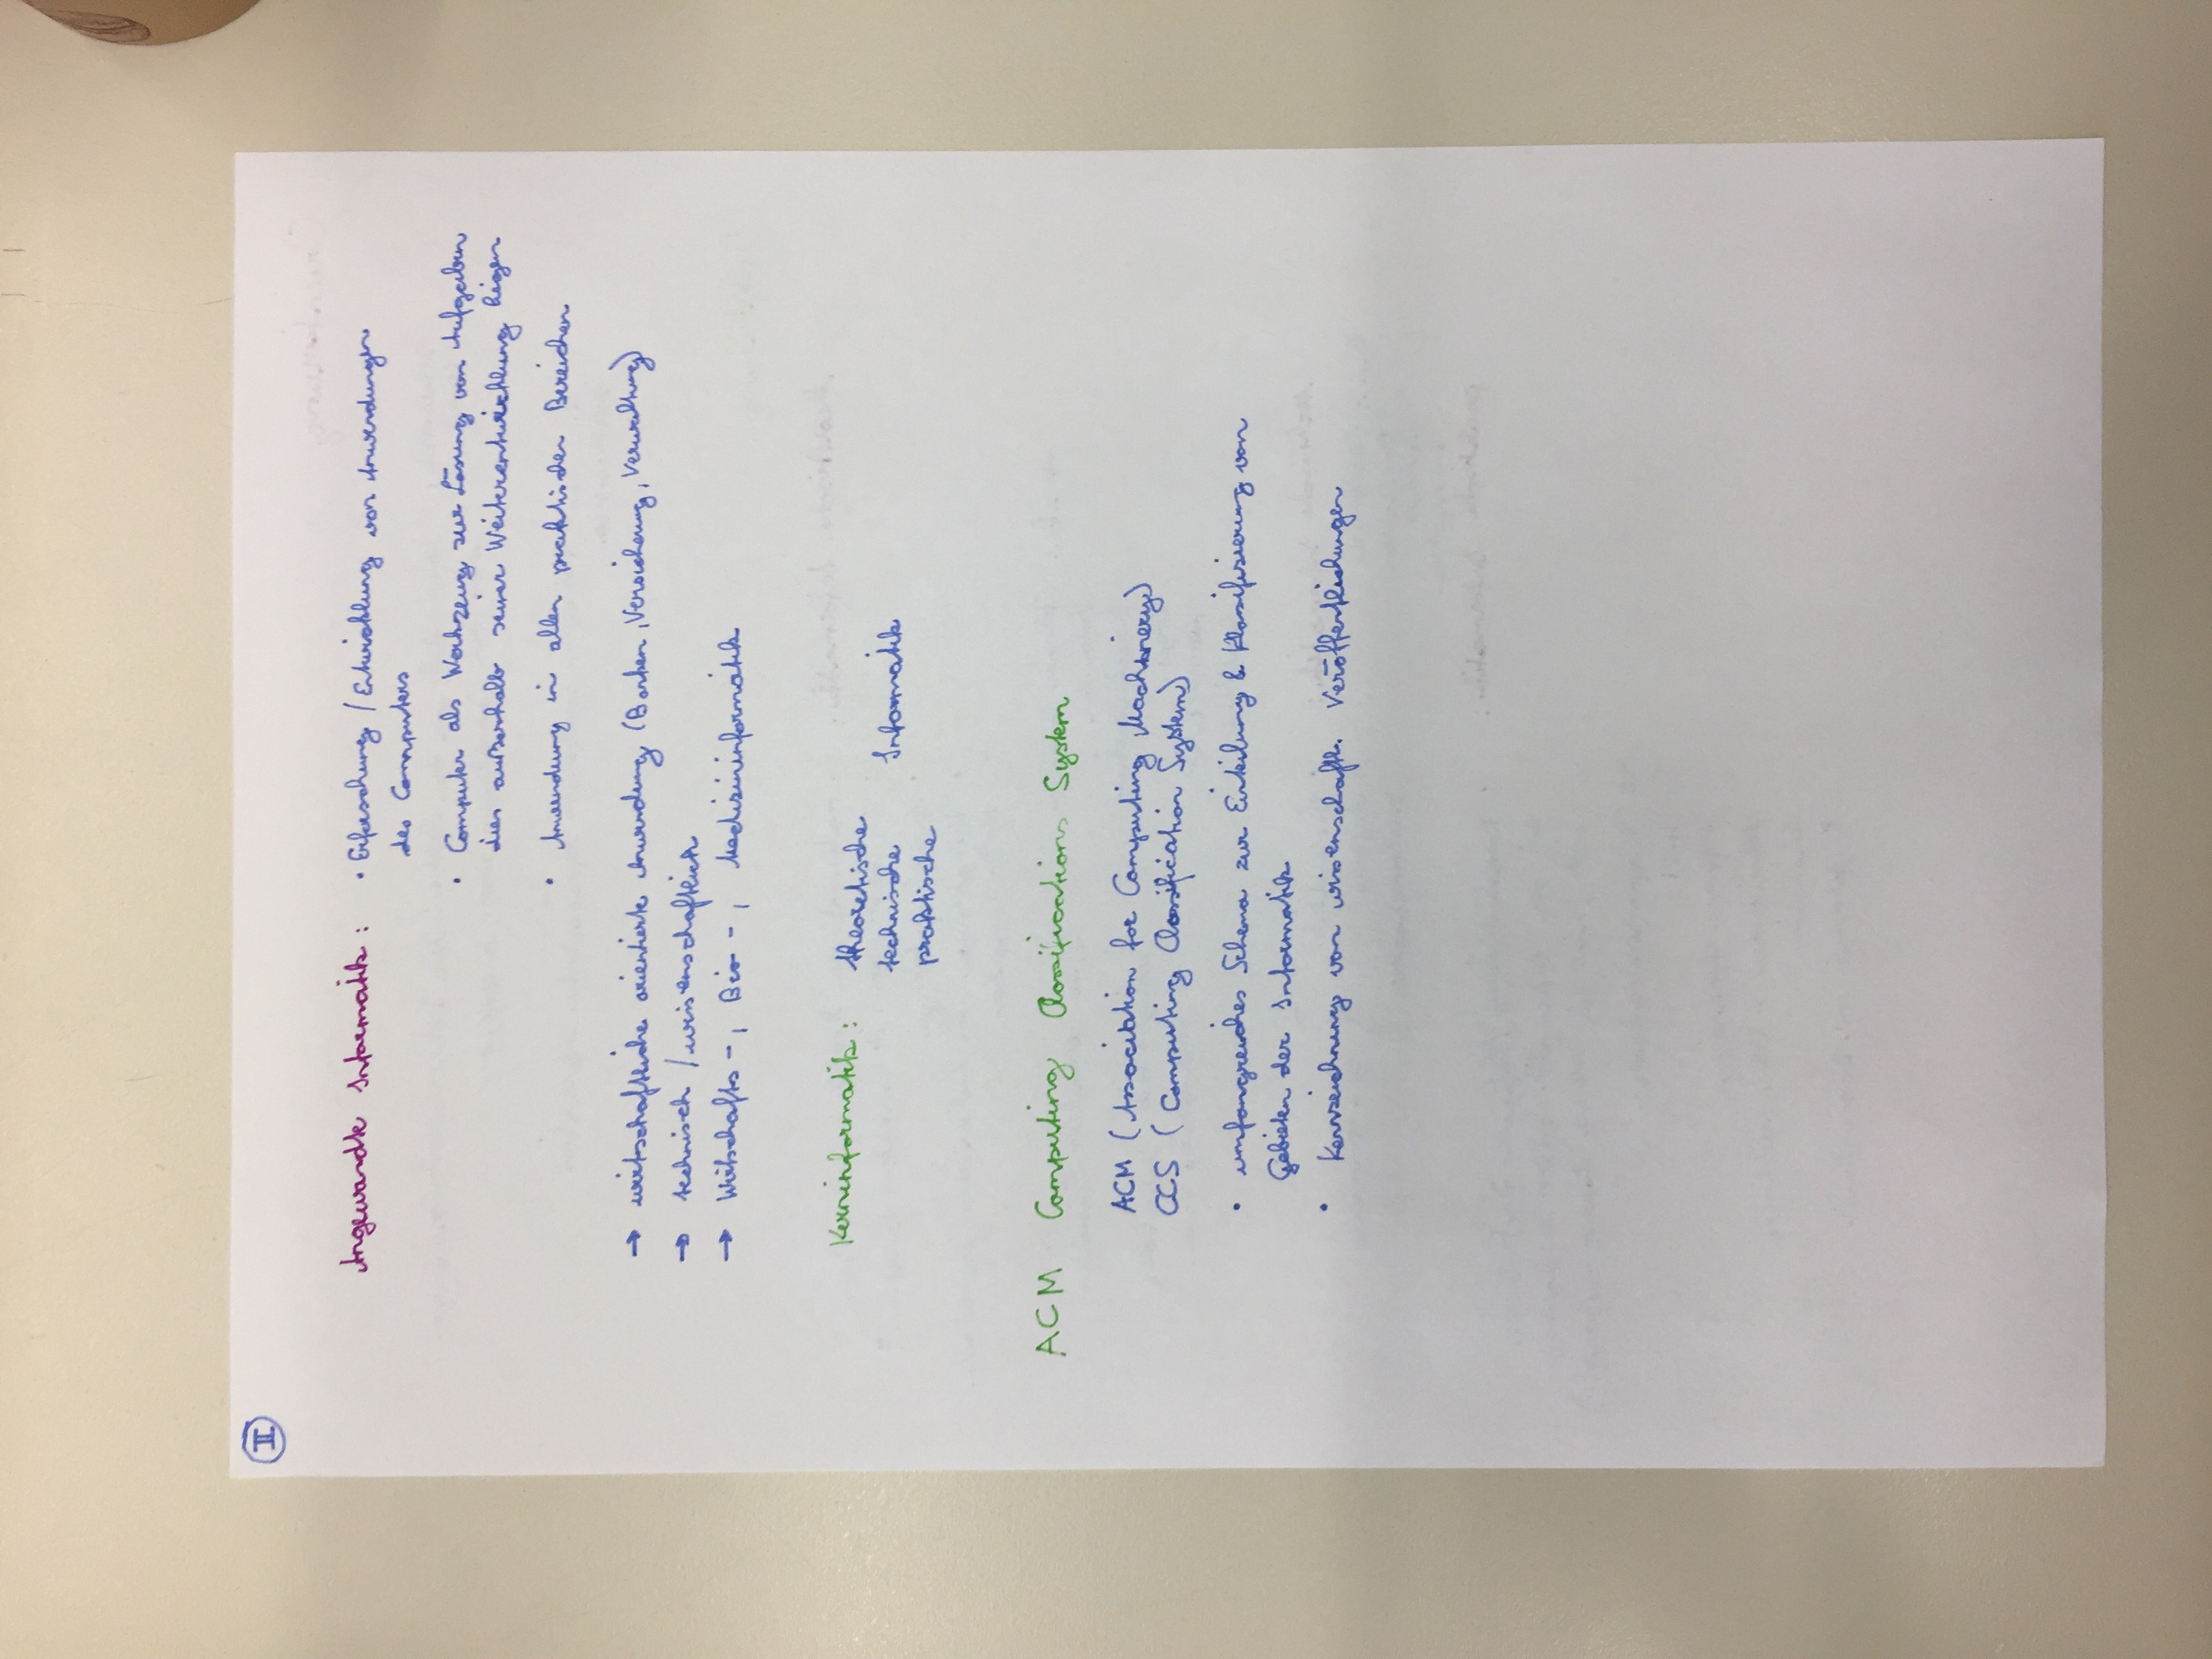 II
Angewandte Informatik: • Erforschung / Entwicklung von Anwendungen
des Computers
• Computer als Werkzeug zur Lösung von Aufgaben
dies außerhalb seiner Weiterentwicklung liegen
• Anwendung in allen praktischen Bereichen
→ wirtschaftliche orientierte Anwendung (Banken, Versicherung, Verwaltung)
→ technisch / wissenschaftlich
→ Wirtschafts-, Bio-, Medizininformatik
Kerninformatik: theoretische
technische Informatik
praktische
ACM Computing Classifications System
ACM (Association for Computing Machinery)
CCS (Computing Classification System)
• umfangreiches Schema zur Einteilung & Klassifizierung von
Gebieten der Informatik
• Kennzeichnung von wissenschaftl. Veröffentlichungen